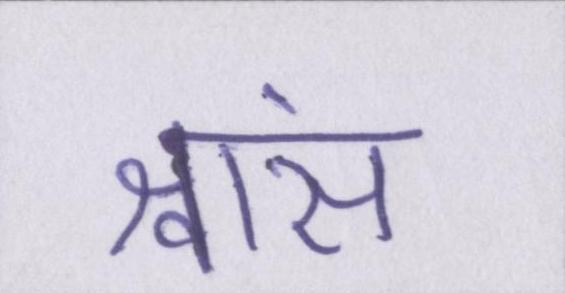 श्वांस